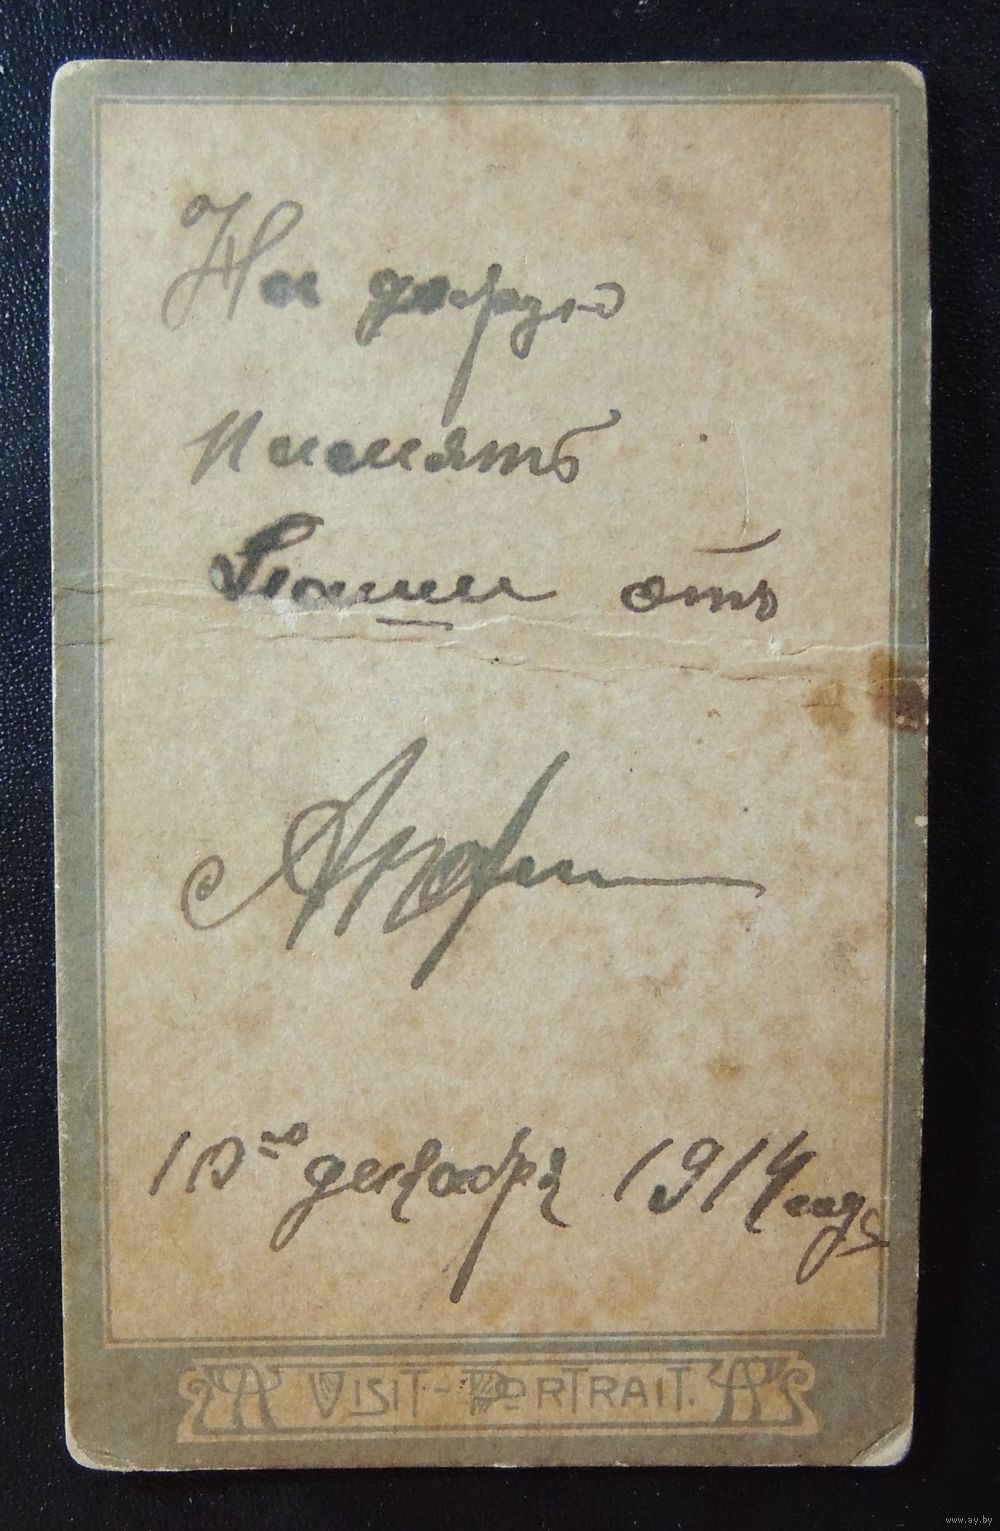 На добрую
память
отъ
10го декабря 1914 года
VISIT-PORTRAIT.
www.ay.by